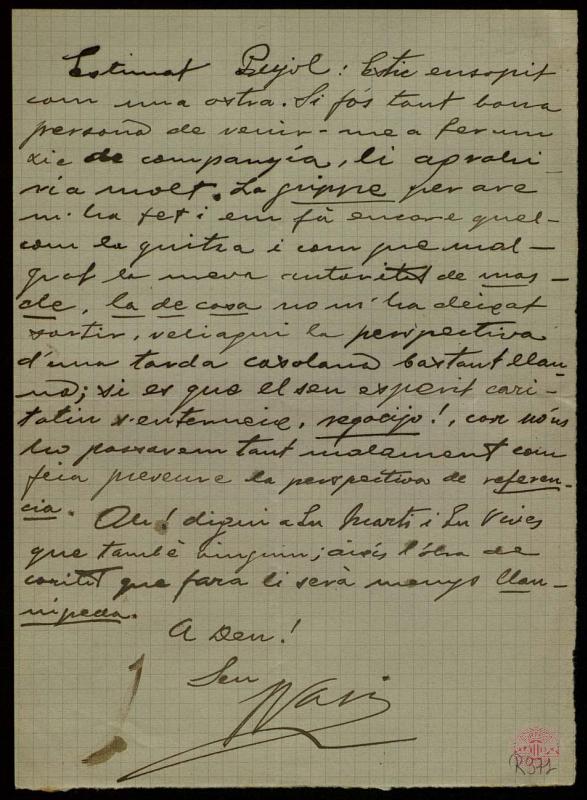 Estimat Pujol: Estic ensopit
com una ostra. Si fós tant bona
persona de venir-me a fer un
xic de companyía, li agrahi-
ria molt. La grippe per ara
m'ha fet i em fà encare quel-
com la guitza i com que mal-
grat la meva autoritat de mas-
cle, la de casa no m'ha deixat
sortir, veliaquí la perspectiva
d'una tarda casolana bastant llau-
na; si es que el seu esperit cari-
tatiu s'enterneix, regocijo!, car nó'ns
ho passarem tant malament com
feia preveure la perspectiva de referen-
cia. Ah! digui a En Martí i En Vives
que també vinguin; aixís l'óbra de
caritat que farà li serà menys llau-
nipeda.
A Deu!
Seu
R 371